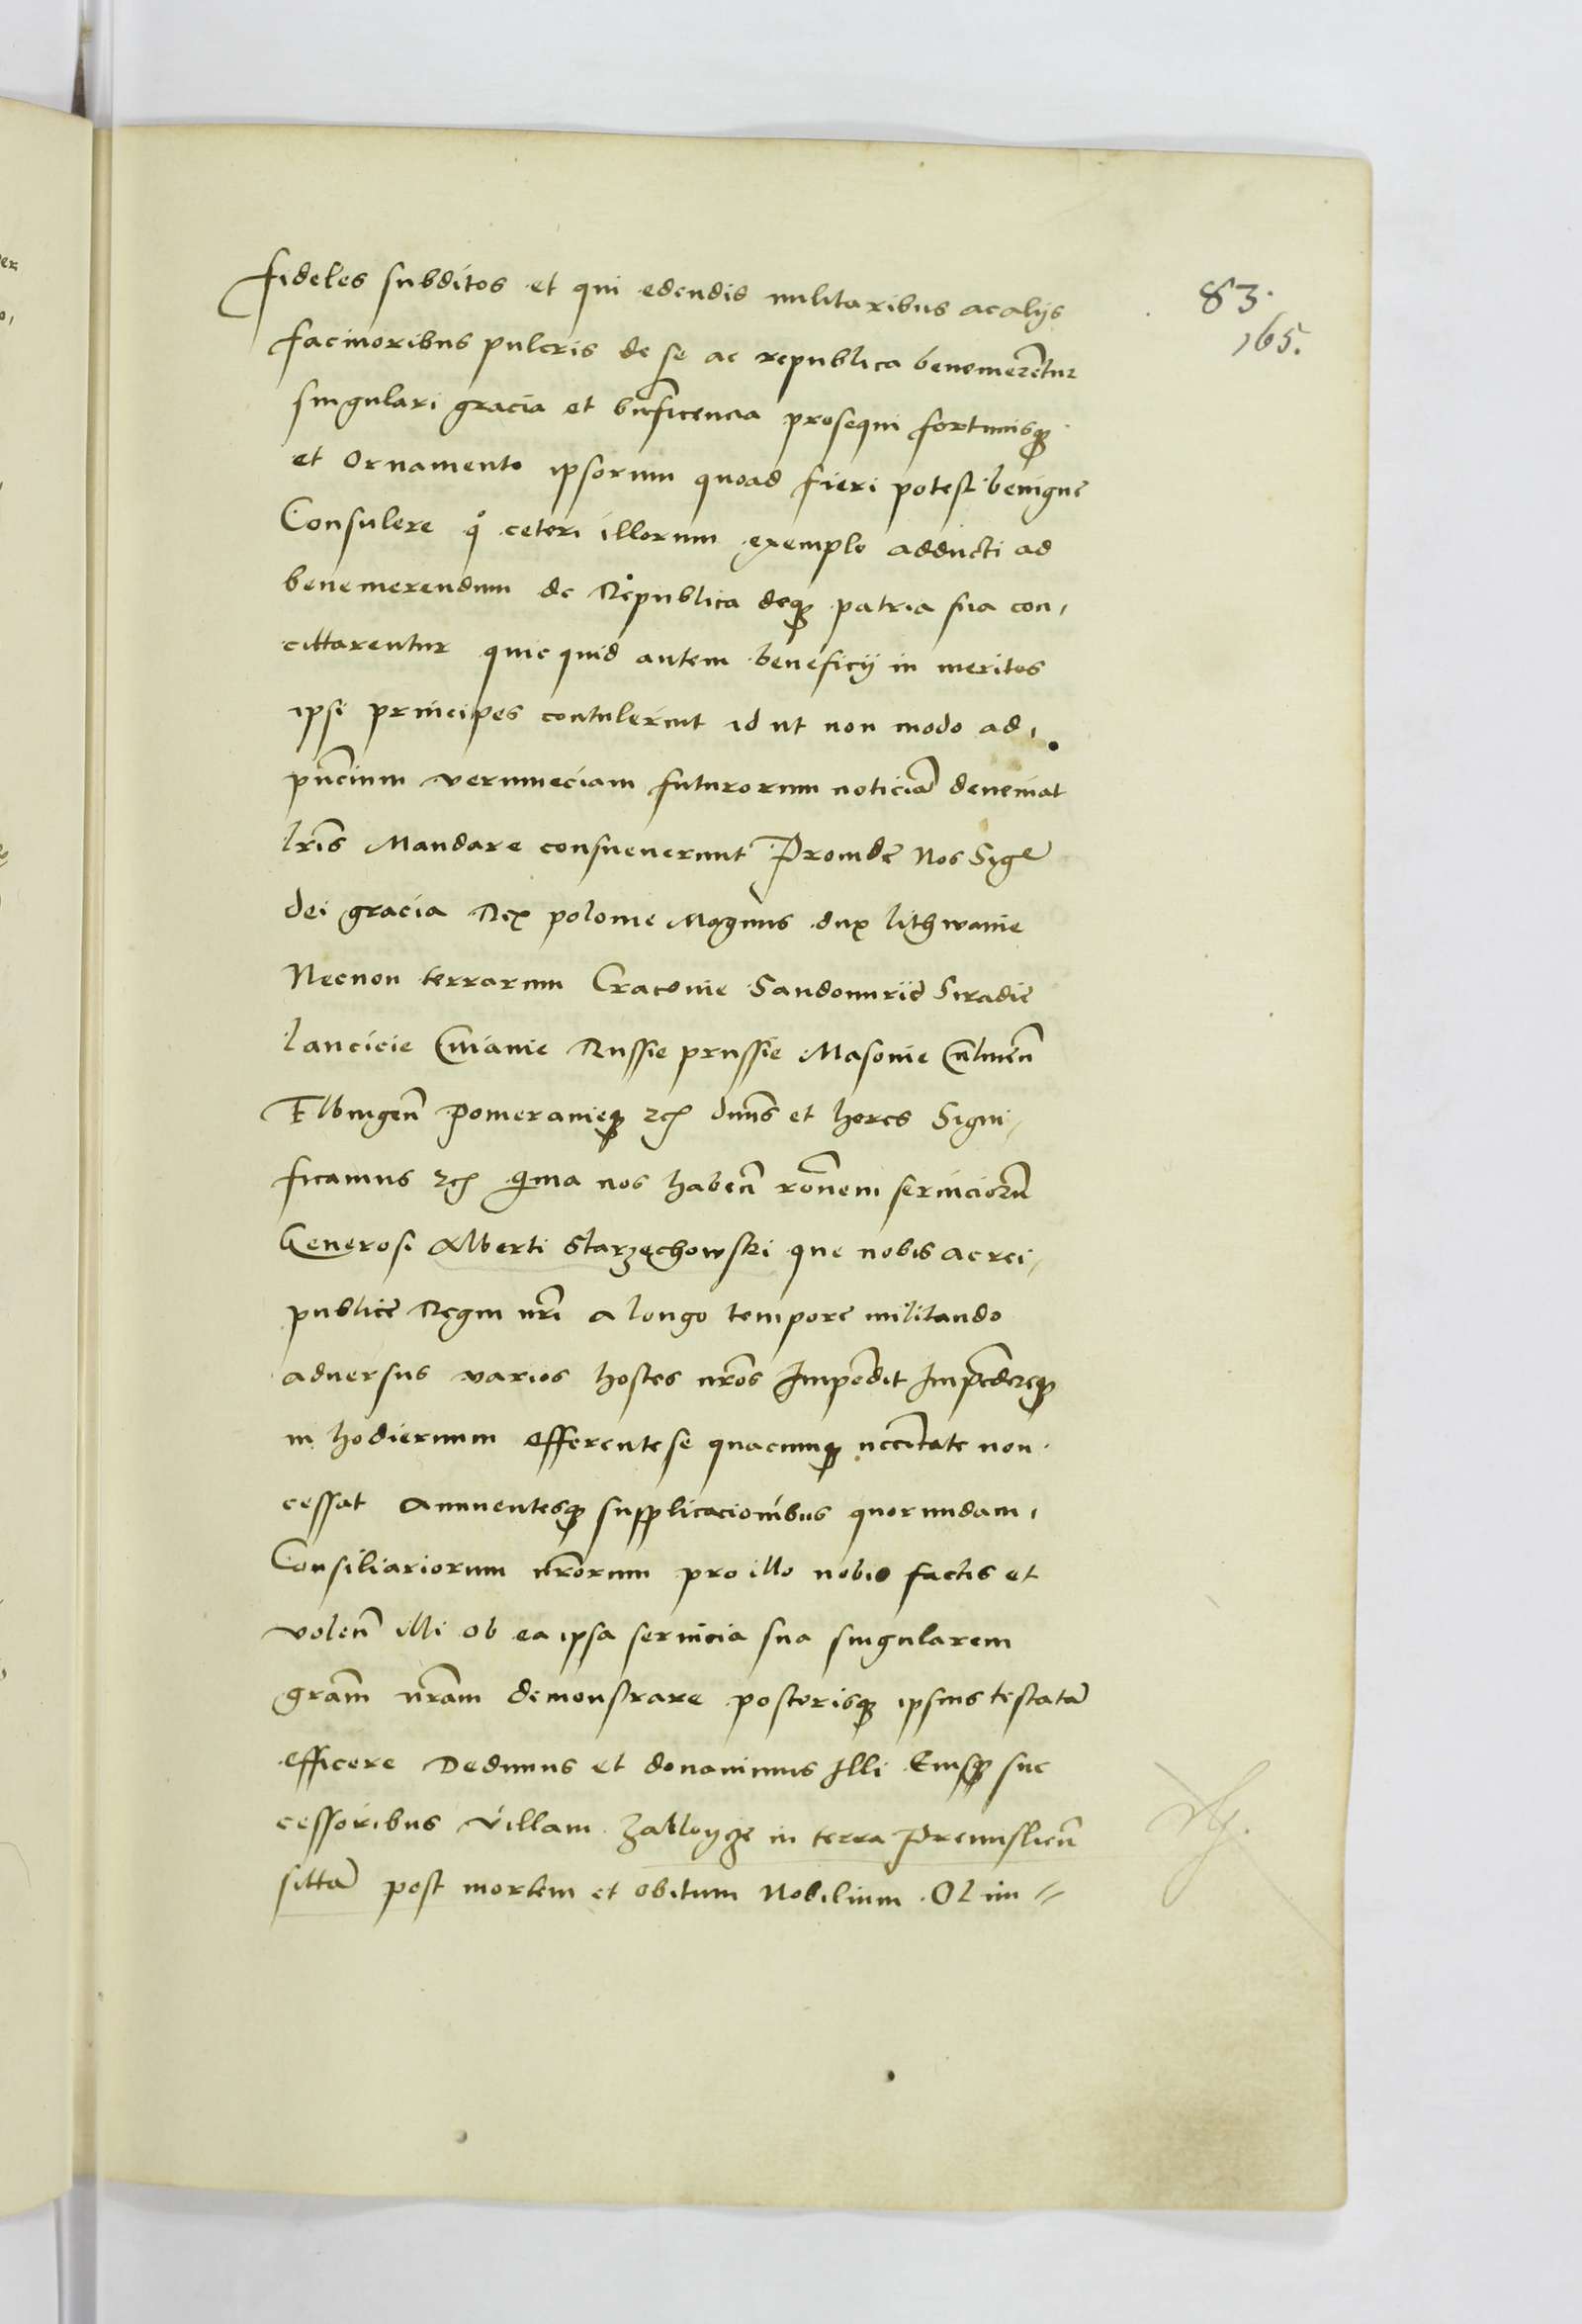 83.
165.
fideles subditos et qui edendis militaribus ac alijs
facinoribus pulcris de se ac republica benemerētur
singulari gracia et bn̄ficencia prosequi fortunisqȝ
et Ornamento ipsorum quoad fieri potest benigne
Consulere qo ceteri illorum exemplo adducti ad
benemerendum de Republica deqȝ patria sua con,
cittarentur quicquid autem beneficij in meritos
ipsi principes contulerint id ut non modo ad,
pn̄cium verumeciam futurorum noticiā deveniat
lr̄is Mandare consueverunt Proinde Nos Sigᵉ
dei gracia Rex polonie Magnus dux lithwanie
Necnon terrarum Cracovie Sandomirie Siradie
lancicie Cuiavie Russie prussie Masovie Culmen̄
Elbingen̄ pomeranieqȝ ⁊c̄ dnn̄s et heres Signi,
ficamus ⁊c̄ quia nos haben̄ rōnem serviciorū
Generosi Alberti Starzechowski que nobis ac rei,
publice Regni nr̄i a longo tempore militando
adversus varios hostes nr̄os Impendit Impēdereqȝ
in hodiernum efferente se quacunqȝ nccitate non
cessat Annuentesqȝ supplicacionibus quorundam,
Consiliariorum nr̄orum pro illo nobis factis et
volen̄ illi ob ea ipsa servicia sua singularem
grām nr̄am demonstrare posterisqȝ ipsius testatā
efficere Dedimus et donavimus Illi Eiusqȝ suc
cessoribus villam Zabloyze in terra Premislien̄
sittā post mortem et obitum Nobilium Olim